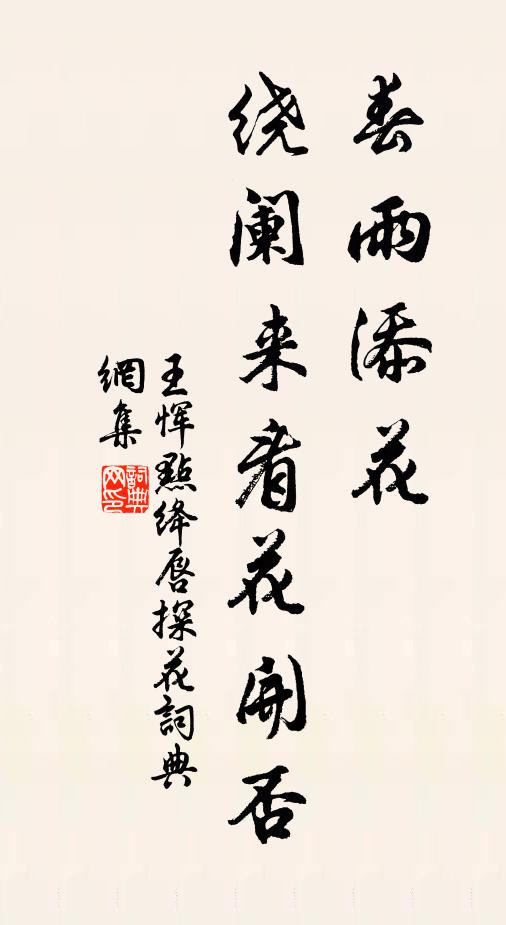 春雨添花
绕阑来看花開否
王恽點绛唇探花詞典
網集
詞典
网印